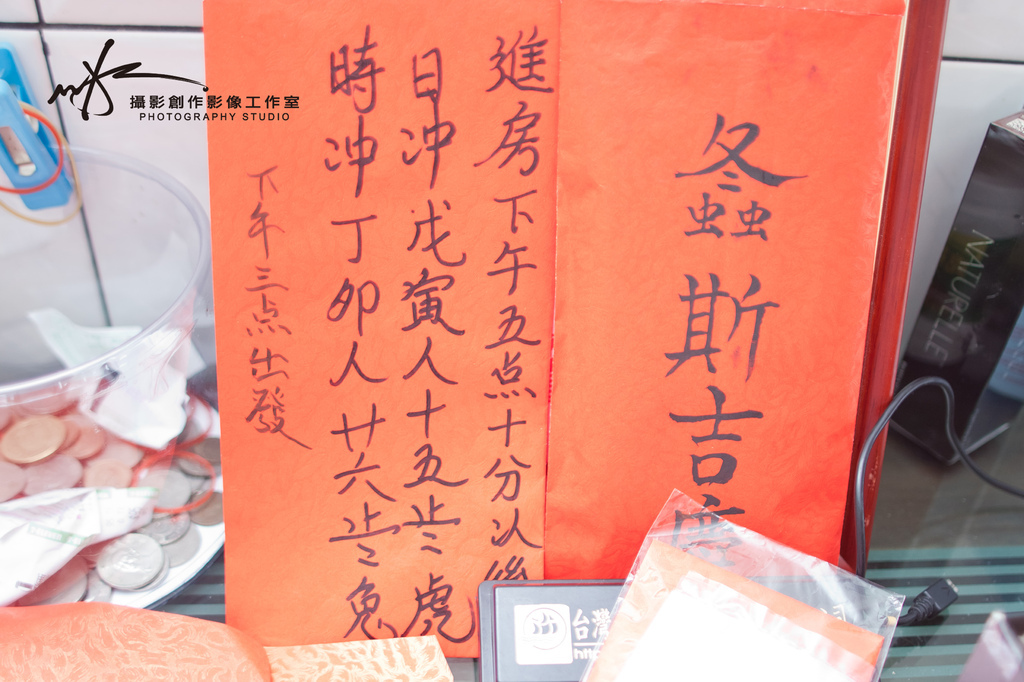 攝影創作影像工作室
PHOTOGRAPHY STUDIO
螽斯吉慶
進房下午五点十分以後
日冲戊寅人十五歲虎
時冲丁卯人廿六歲兔
下午三点出發
NATURELLE
台灣